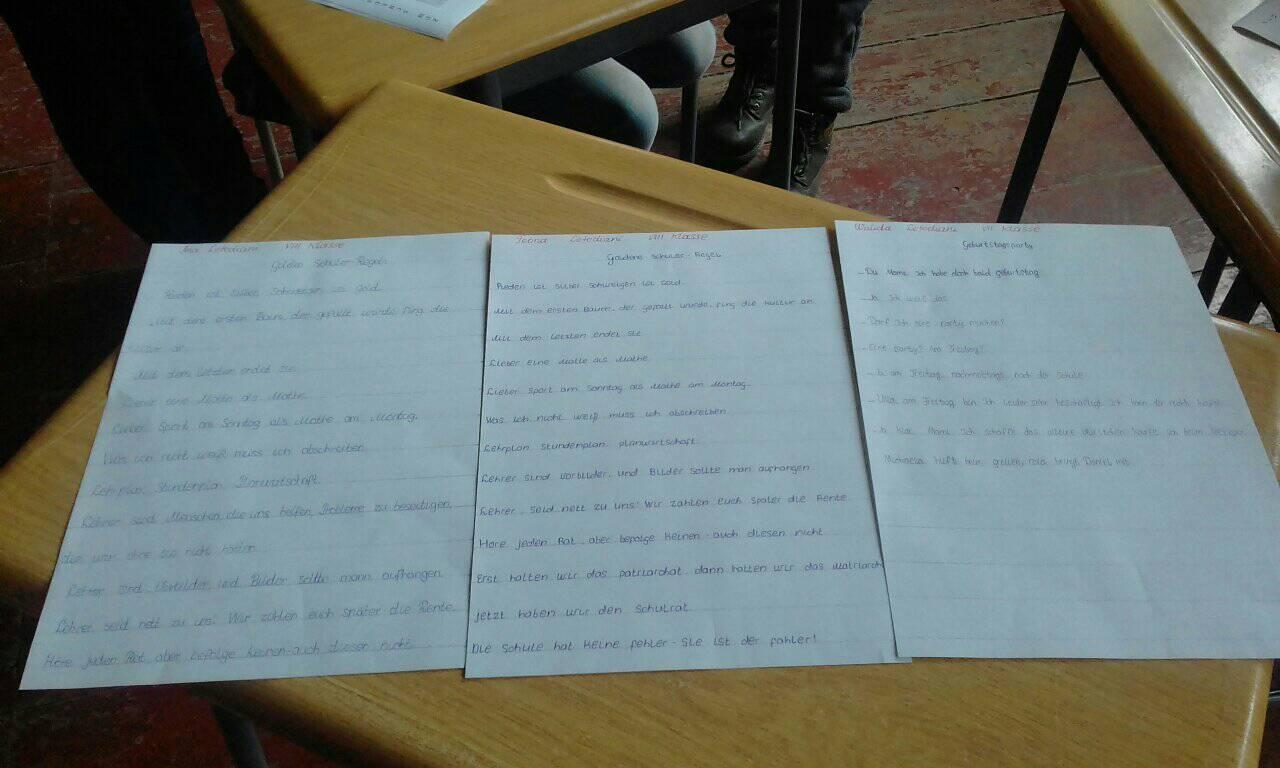 Letodiani VIII Klasse
Goldene Schüler-Regeln
Reden ist Silber Schweigen is Gold.
Mit dem ersten Baum, der gefällt wurde, fing die
an
Mit dem letzten endet sie
eine als Mathe
Lieber Sport am Sonntag als Mathe am Montag.
Was ich nicht weiß muss ich abschreiben
Lehrplan Stundenplan Planwirtschaft
Lehrer sind Menschen, die uns helfen, Probleme zu beseitigen,
die wir ohne sie nicht hätten
Lehrer sind Vorbilder und Bilder sollte mann aufhängen.
Lehrer seid nett zu uns! Wir zahlen euch später die Rente.
Höre jeden Rat, aber befolge keinen-auch diesen nicht.
Letodiani VIII Klasse
Goldene Schuler-Regeln
Reden ist silber schweigen ist gold.
Mit dem ersten Baum, der gefällt wurde, fing die Kultur an.
Mit dem letzten endet sie
Lieber eine Matte als Mathe
Lieber sport am Sonntag als Mathe am Montag.
Was ich nicht weiß muss ich abschreiben
Lehrplan stundenplan planwirtschaft.
Lehrer sind vorbilder, und Bilder sollte man aufhangen
Lehrer, seid nett zu uns! Wir zahlen euch später die Rente.
Höre jeden Rat, aber befolge keinen-auch diesen nicht
Erst hatten wir das patriarchat, dann hatten wir das Matriarch
Jetzt haben wir den schulrat
Die schule hat keine fehler-sie ist der fahler!
Letodiani VIII Klasse
Geburtstagsparty
-Du Mami, ich habe doch bald geburtstag.
-Ja ich weiß das
-Darf ich eine party machen?
-Eine party? Am Freitag?
-Ja am Freitag nachmittags, nach der Schule
am Freitag bin ich leider sehr beschäftigt. Ich kann dir nicht helfen
-Ja klar, Mami. Ich schaffe das alleine. kaufe ich beim
Michaela hilft mir bringt Daniel mit.